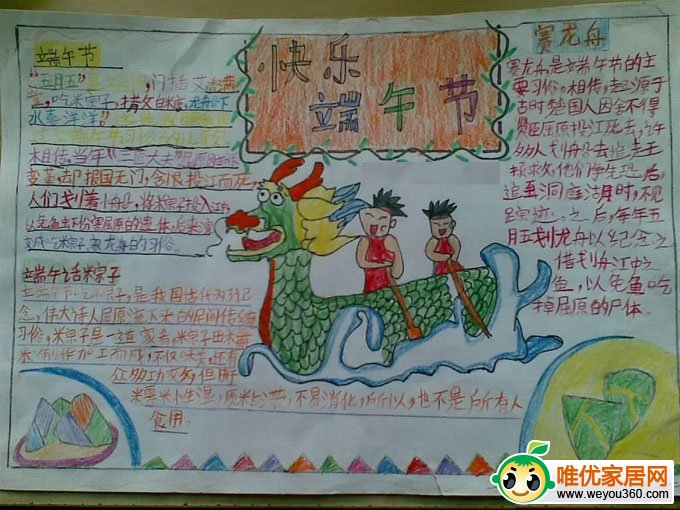 快乐
端午节
端午节
“五月五”
,门插艾
堂,吃米宗子,
水喜洋洋”
相传,当年“三闾大夫”屈原
变革,却报国无门,含恨投江而死,
人们划着小舟,将米宗子投入江中
以免鱼虾伤害屈原的遗体,后来演
变成吃米宗子,赛龙舟的习俗。
端午话米宗子
端午吃米宗子,是我国古代为了纪
念,伟大诗人屈原流下来的民间传统
习俗,米宗子是一道家肴,米宗子由米而
制作加工而成,不仅味美,还有
众多功效,但由于
米需米小生湿,质米占滞,不易消化,所以,也不是所有人
食用。
赛龙舟
赛龙舟是立端午节的主
要习俗。相传,起源于
古时楚国人因舍不得
贤臣屈原投江死去,许
多人划船去追赶
拯求,他们争先恐后,
追至洞庭湖时,不见
踪迹。之后,每年五
月五划龙舟以纪念之
借划舟江中之
鱼,以免鱼吃
掉屈原的尸体。
唯优家居网
www.weyou360.com